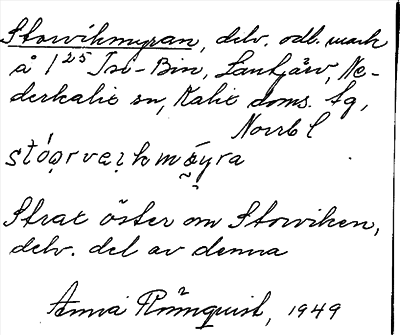 Storvikmyran, delv. odl. mark
å 1²⁵ Isi-Bin, Lantjärv, Ne-
derkalix sn, Kalix doms. tg,
Norrb l
stóọrvẹịkmøyra
Strax öster om Storviken,
delv. del av denna
Anna Rönnquist, 1949